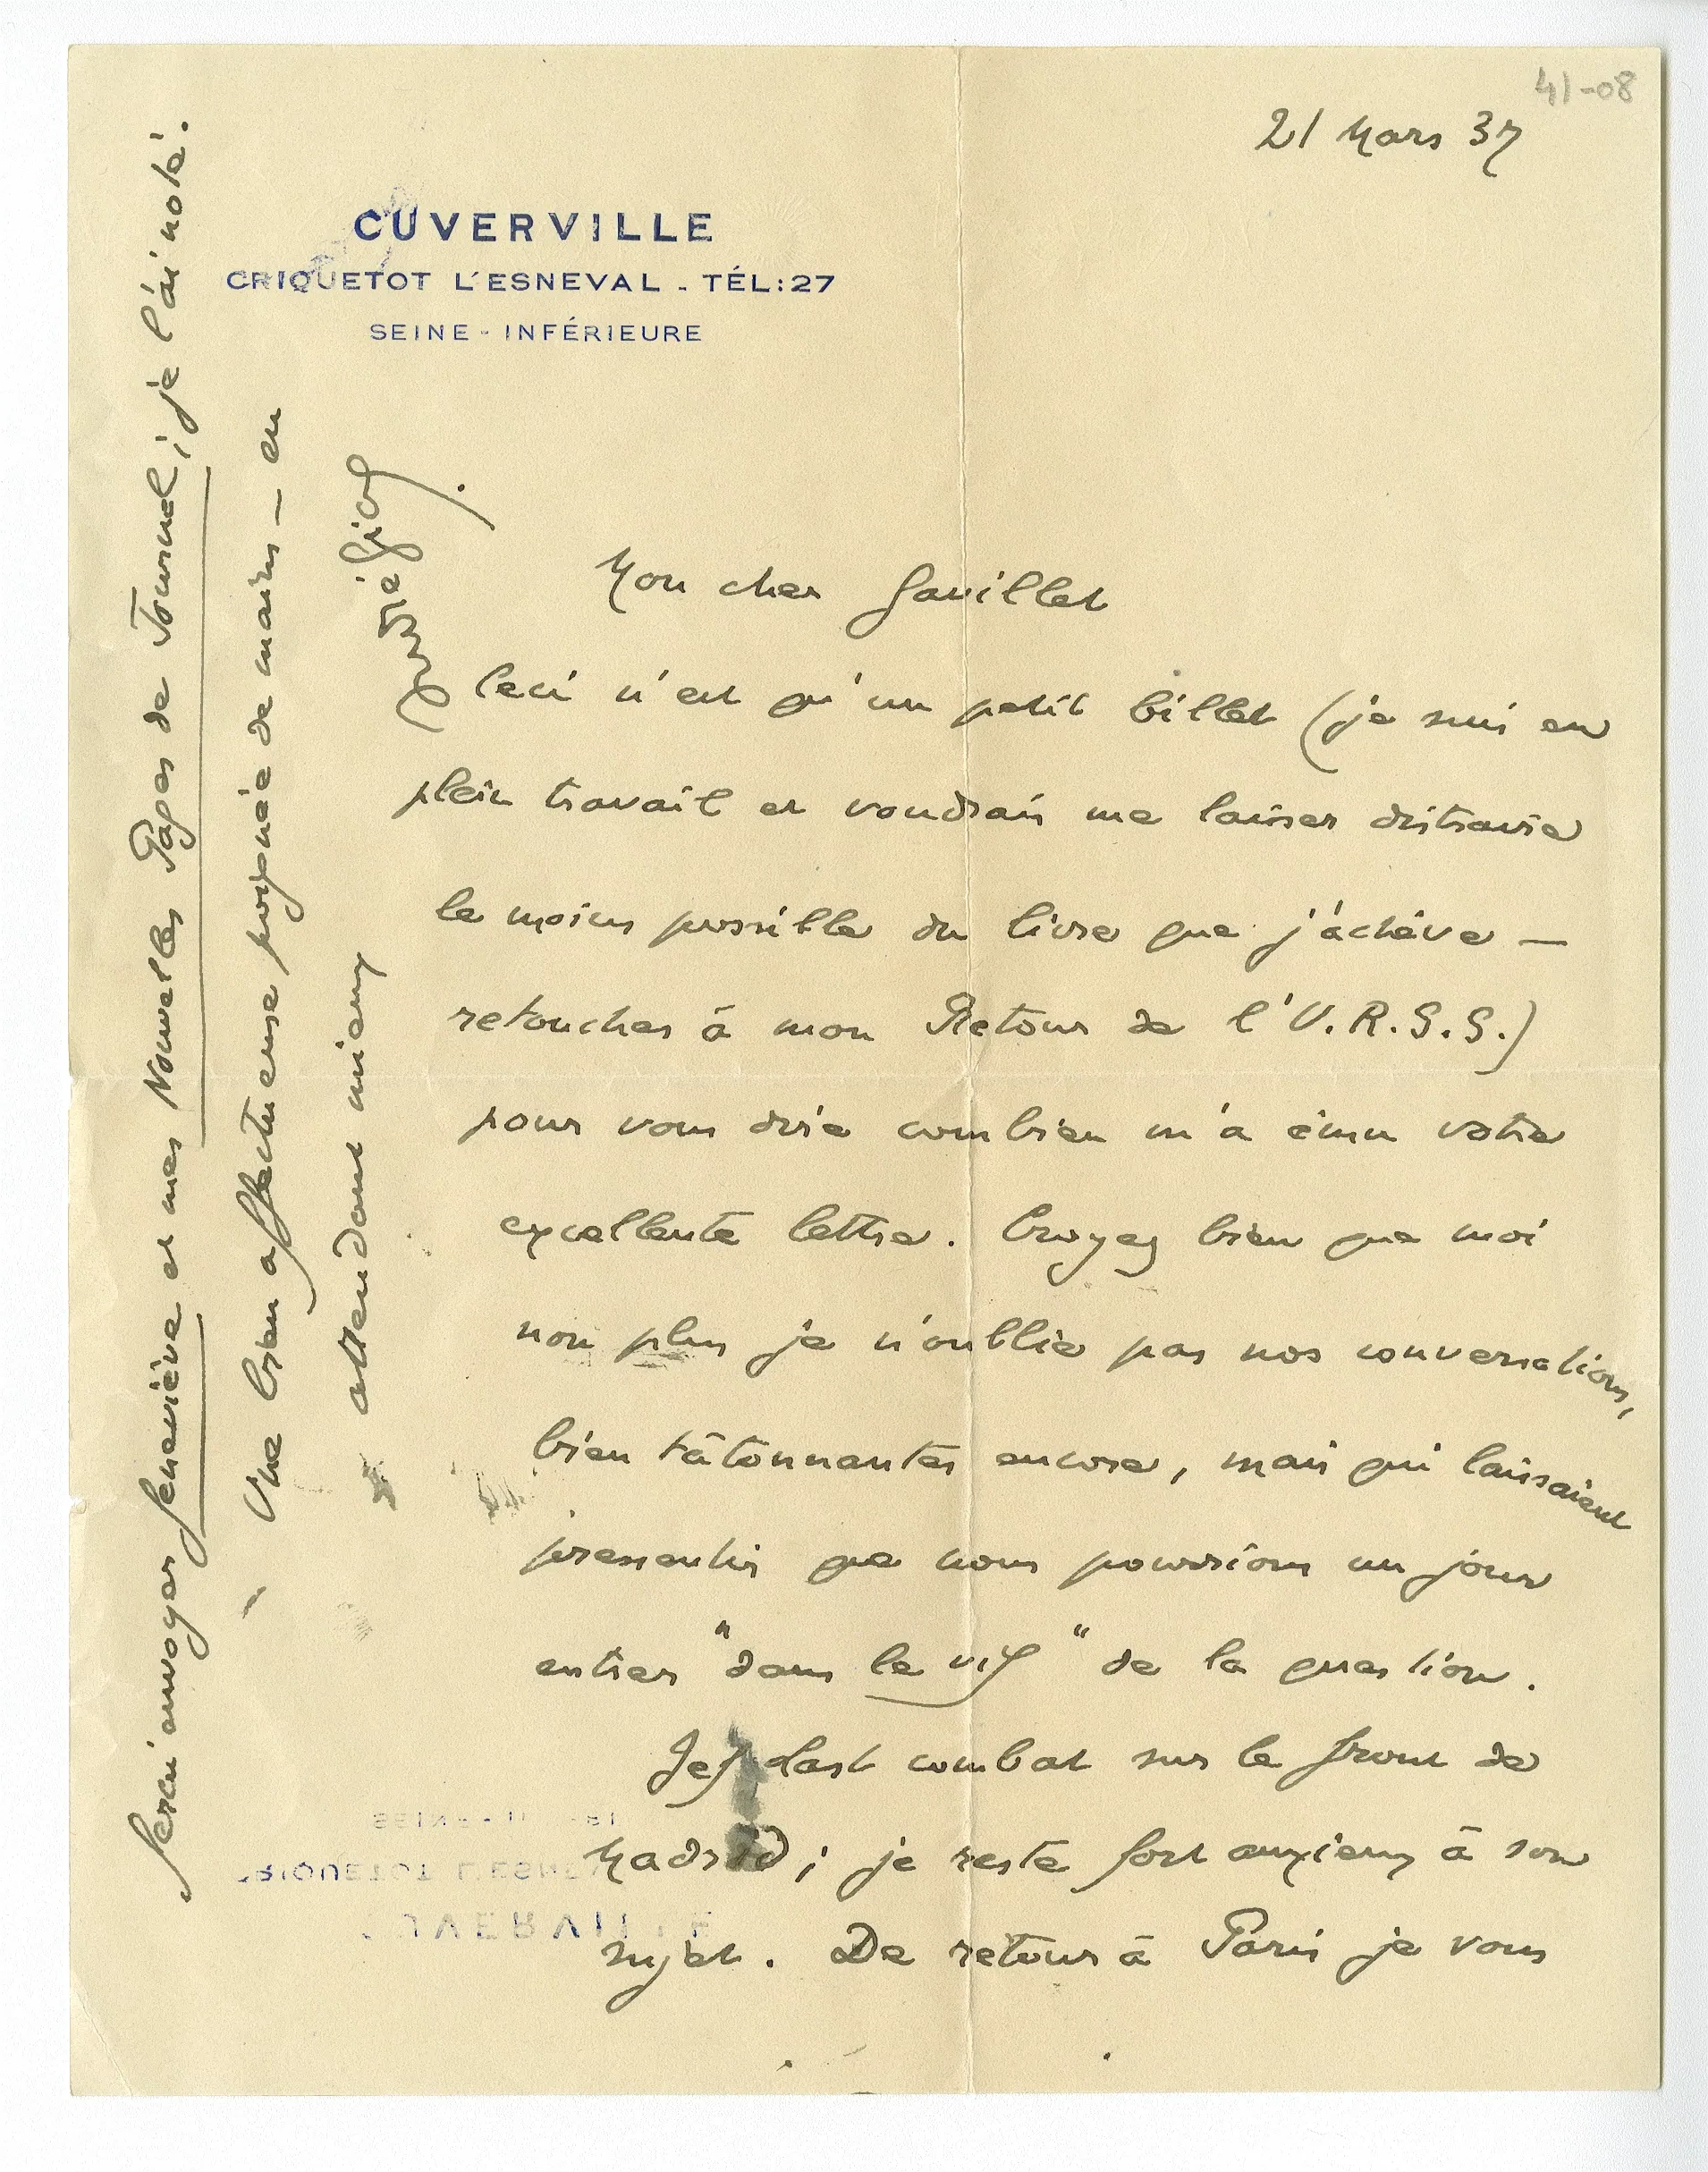 41-08
21 Mars 37
CUVERVILLE
CRIQUETOT L'ESNEVAL - TÉL:27
SEINE - INFÉRIEURE
Mon cher Gouillet
Ceci n'est qu'un petit billet (je suis en
plein travail et voudrais me laisser distraire
le moins possible du livre que j'achève —
retouches à mon Retour de l'U.R.S.S.)
pour vous dire combien m'a ému votre
excellente lettre. Croyez bien que moi
non plus je n'oublie pas nos conversations,
bien tâtonnantes encore, mais qui laissaient
pressentir que nous pourrions un jour
entrer "dans le vif" de la question.
Jef Last combat sur le front de
Madrid ; je reste fort anxieux à son
sujet. De retour à Paris je vous
ferai envoyer Geneviève et mes Nouvelles Pages de Journal ; je l'ai noté.
Une bien affectueuse poignée de mains — en
attendant mieux
André Gide.